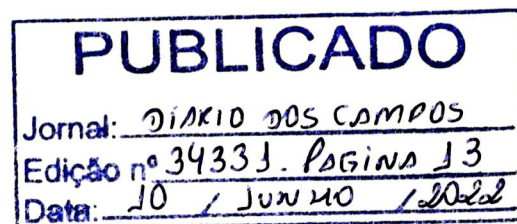 PUBLICADO
Jornal: DIÁRIO DOS CAMPOS
Edição nº 34331. PAGINA 13
Data: 10 / JUNHO / 2022